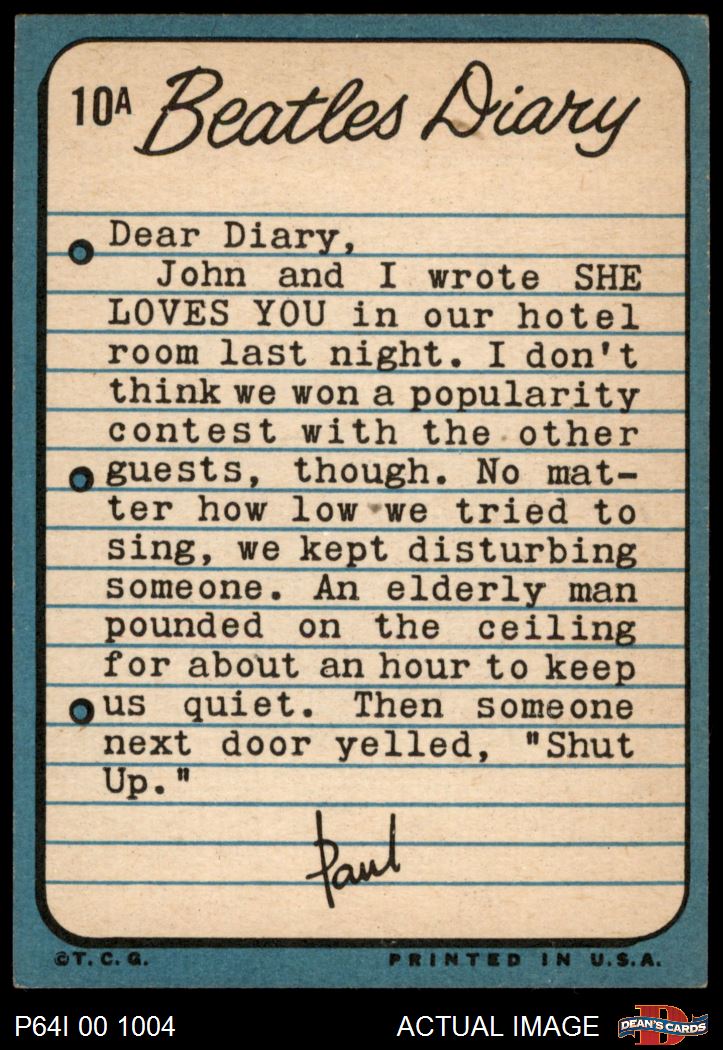 10A Beatles Diary
Dear Diary,
John and I wrote SHE
LOVES YOU in our hotel
room last night. I don't
think we won a popularity
contest with the other
guests, though. No mat-
ter how low we tried to
sing, we kept disturbing
someone. An elderly man
pounded on the ceiling
for about an hour to keep
us quiet. Then someone
next door yelled, "Shut
Up."
Paul
©T.C.G. PRINTED IN U.S.A.
P64I 00 1004 ACTUAL IMAGE D DEAN'S CARDS